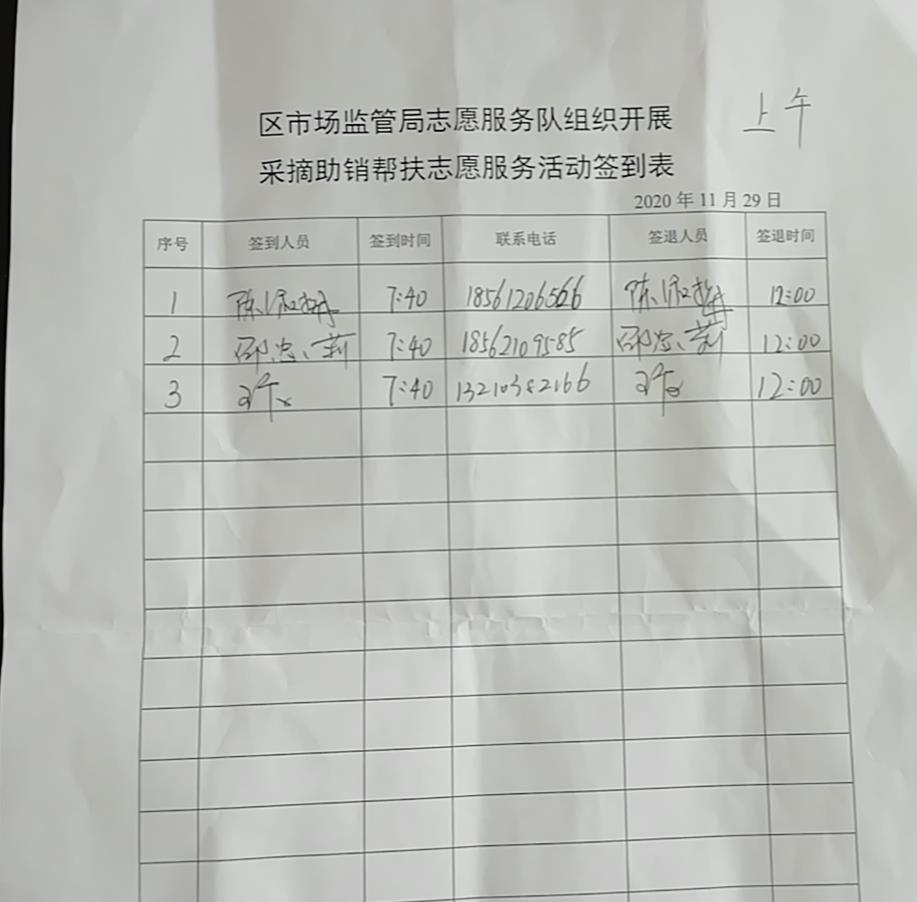 上午
区市场监管局志愿服务队组织开展
采摘助销帮扶志愿服务活动签到表
2020年11月29日
序号 签到人员 签到时间 联系电话 签退人员 签退时间
1 陈 7:40 18561206566 陈 12:00
2 邵忠莉 7:40 18562109585 邵忠莉 12:00
3 7:40 13210382166 12:00